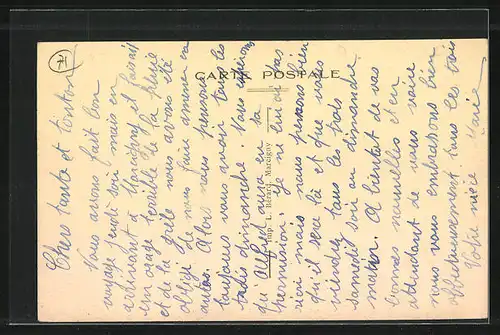 CARTE POSTALE
Imp. L. Bérard, Marcigny
Chers tante et tonton
Nous avons fait bon
voyage jeudi soir mais en
arrivant à Marcigny il faisait
un orage terrible de la pluie
et de la grêle nous avons été
obligé de nous faire amener en
auto. Alors nous pensons
toujours vous avoir tous les
trois dimanche. Nous espérons
qu'Albert aura eu sa
permission. Je ne lui ai pas
écri mais nous pensons bien
qu'il sera là et que vous
viendrez tous les trois
samedi soir ou dimanche
matin. A bientôt de vos
bonnes nouvelles et en
attendant de vous voir
nous vous embrassons bien
affectueusement tous les trois
Votre nièce Marie